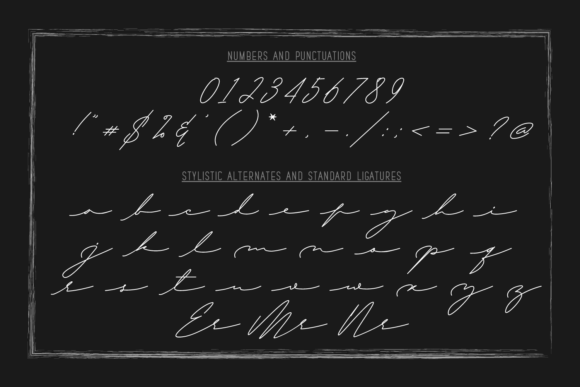 NUMBERS AND PUNCTUATIONS
0123456789
! " # $ % & ' ( ) * + , - . / : ; < = > ? @
STYLISTIC ALTERNATES AND STANDARD LIGATURES
a b c d e f g h i
j k l m n o p q
r s t u v w x y z
Er Mr Nr